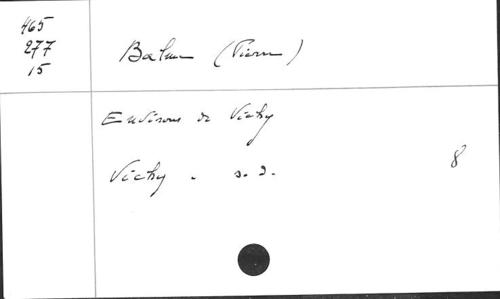 465
277
15
Balme (Pierre)
Environs de Vichy
Vichy. s. d.
8